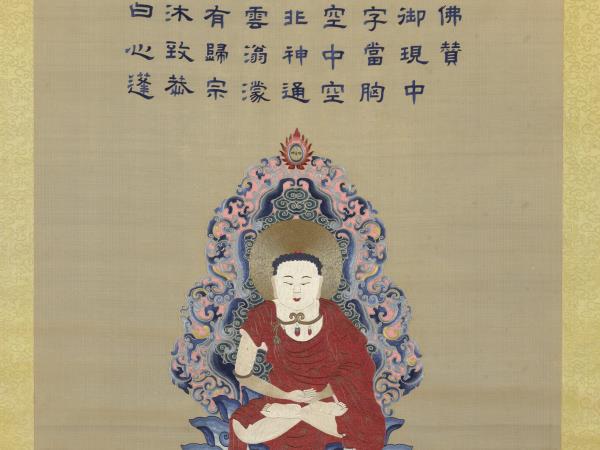 佛贊
御現中
字當胸
空中空
非神通
雲滃濛
有歸宗
沐致恭
白心蓬